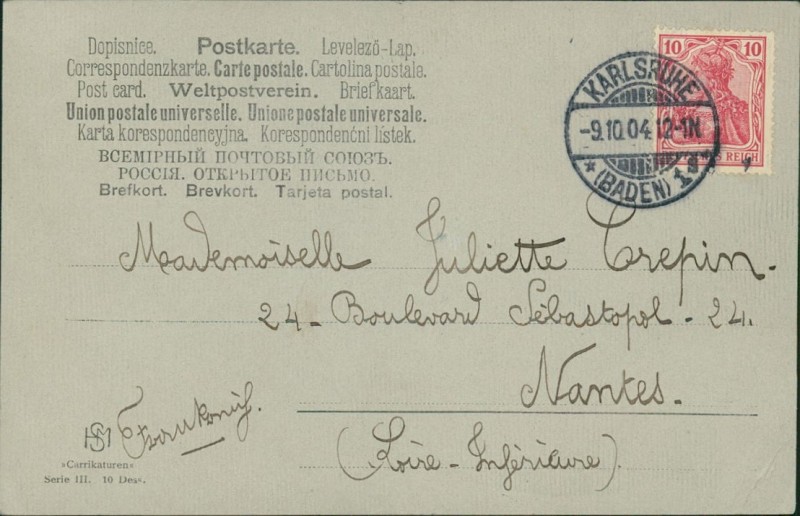 Dopisnice. Postkarte. Levelező-Lap.
Correspondenzkarte. Carte postale. Cartolina postale.
Post card. Weltpostverein. Briefkaart.
Union postale universelle. Unione postale universale.
Karta korespondencyjna. Korespondenční lístek.
ВСЕМІРНЫЙ ПОЧТОВЫЙ СОЮЗЪ.
РОССІЯ. ОТКРЫТОЕ ПИСЬМО.
Brefkort. Brevkort. Tarjeta postal.
10 10
REICH
KARLSRUHE
-9.10.04. 12-1N
* (BADEN)
Mademoiselle Juliette Crepin.
24 - Boulevard Sébastopol - 24.
Nantes.
(Loire - Inférieure).
»Carrikaturen«
Serie III. 10 Dess.